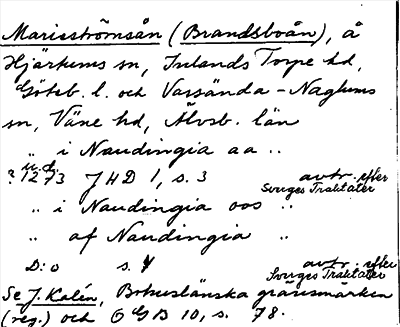 Marieströmsån (Brandsboån), å
Hjärtums sn, Inlands Torpe hd,
Göteb. l. och Vassända-Naglums
sn, Väne hd, Älvsb. län
" i Naudingia aa "
u.d.
? 1273 JHD 1, s. 3 avtr. efter
Sveriges Traktater
" i Naudingia oos "
" af Naudingia "
D:o s. 4 avtr. efter
Sveriges Traktater
Se J. Kalén, Bohuslänska gränsmärken
(reg.) och OGB 10, s. 78.